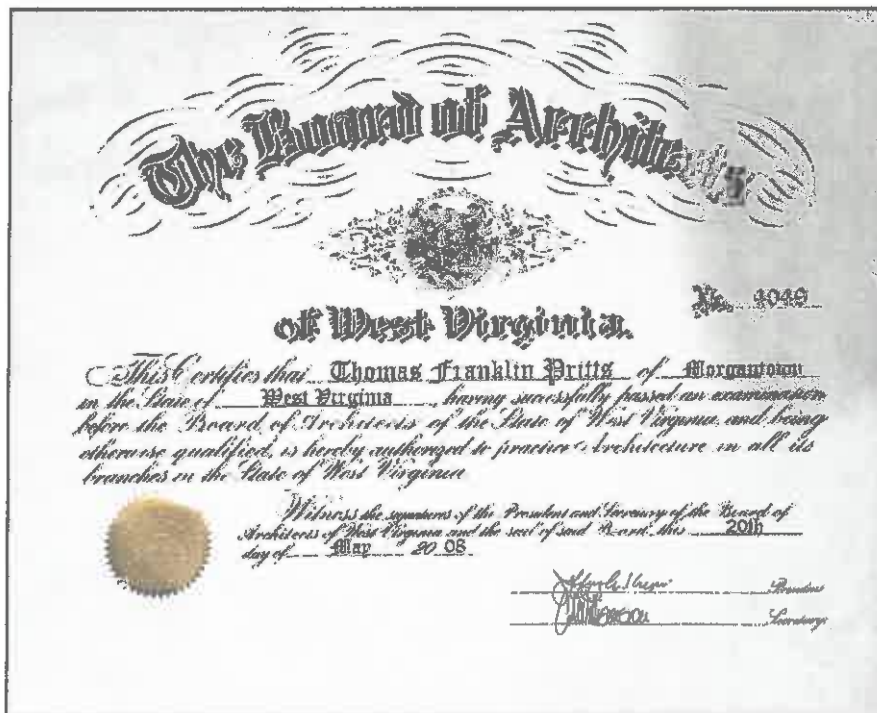 The Board of Architects
No. 4049
of West Virginia.
This Certifies that Thomas Franklin Pritts of Morgantown
in the State of West Virginia, having successfully passed an examination
before the Board of Architects of the State of West Virginia, and being
otherwise qualified, is hereby authorized to practice Architecture in all its
branches in the State of West Virginia
Witness the signatures of the President and Secretary of the Board of
Architects of West Virginia and the seal of said Board, this 20th
day of May 2008
President
Secretary